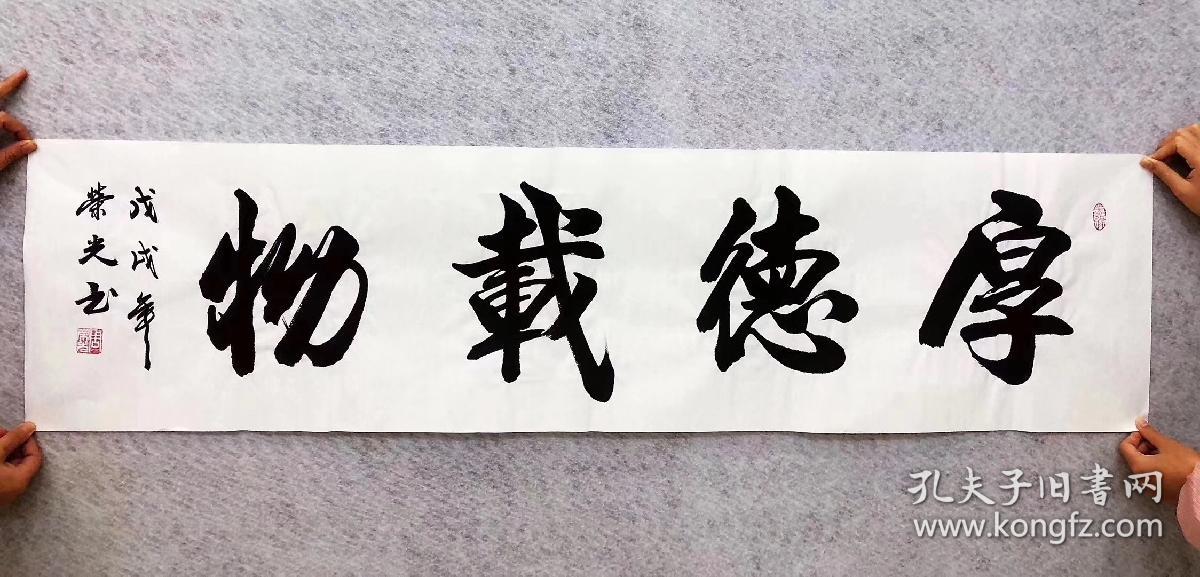 厚德載物
戊戌年
榮光书
孔夫子旧書网
www.kongfz.com